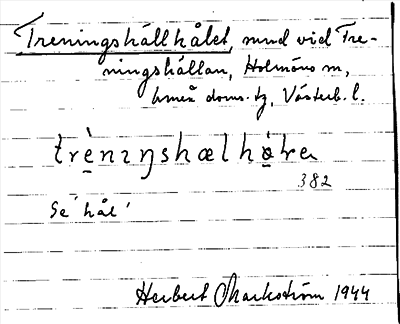 Treningshällhålet, sund vid Tre-
ningshällan, Holmöns sn,
Umeå doms. tg, Västerb. l.
trèniŋshælhò̱ƚea
382
Se 'hål'
Herbert Markström 1944